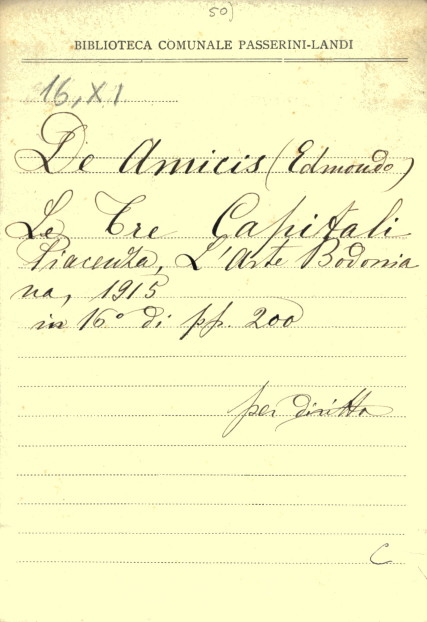 50)
BIBLIOTECA COMUNALE PASSERINI-LANDI
16, XI
De Amicis (Edmondo)
Le Tre Capitali
Piacenza, L'Arte Bodonia
na, 1915
in 16° di pp. 200
per diritto
C